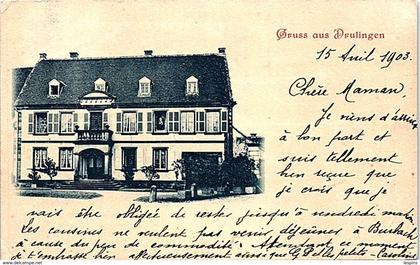 Gruss aus Drulingen
15 Avril 1903
Chère Maman,
Je viens d'arriver
à bon port et
suis tellement
bien reçue que
je crois que je
vais être obligée de rester jusqu'à vendredi matin
Les cousines ne veulent pas venir déjeuner à
à cause du peu de commodités Attendant ce moment
je t'embrasse bien affectueusement ainsi que G.P. et les petits-